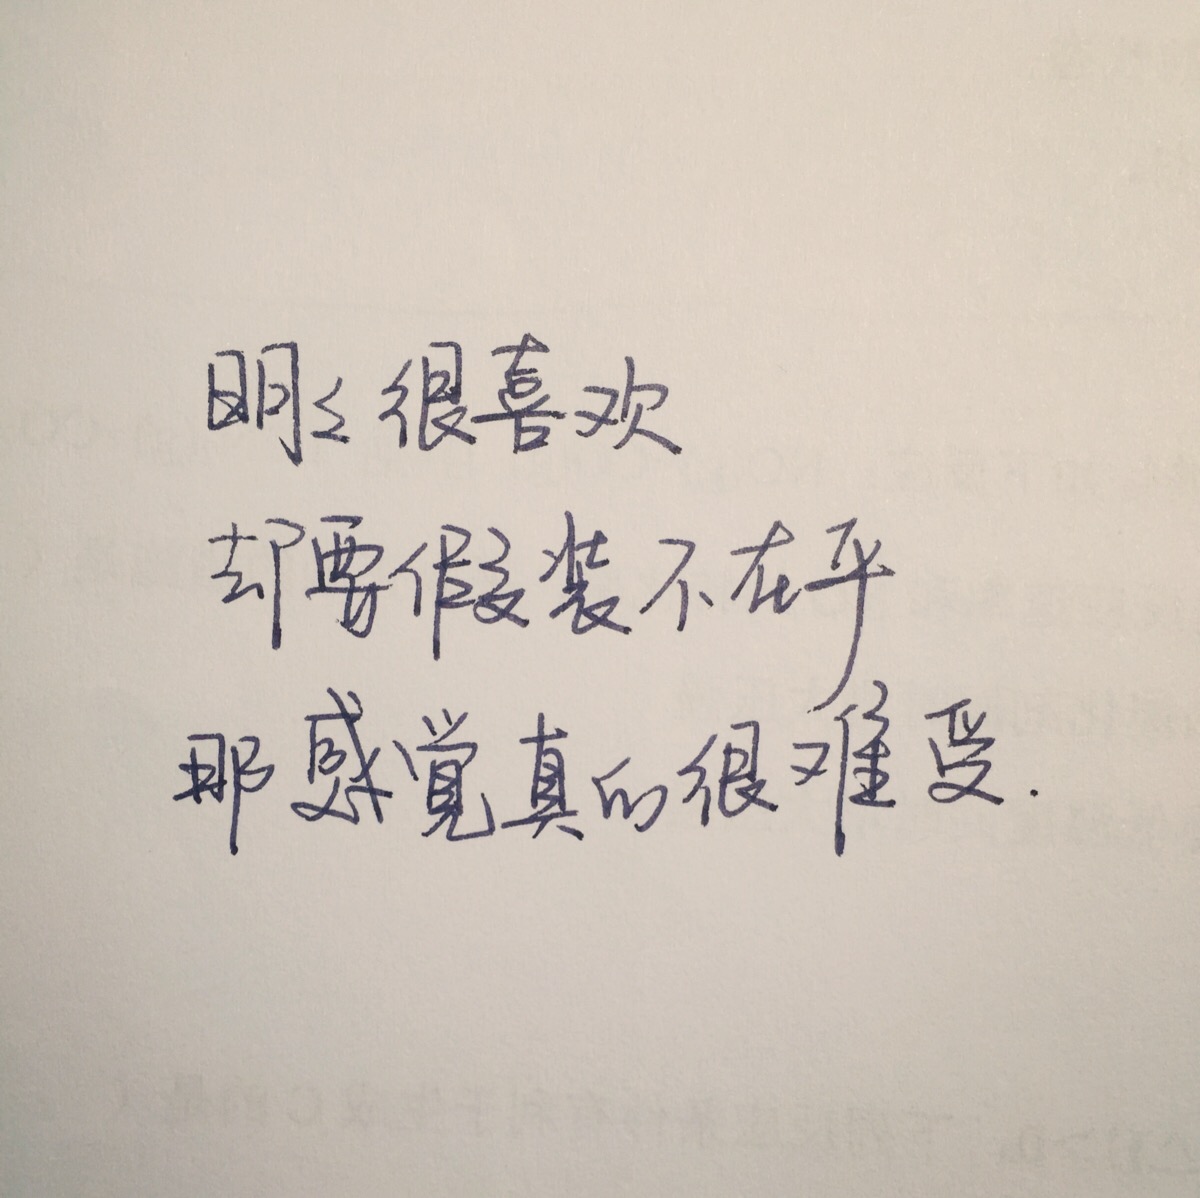 明々很喜欢
却要假装不在乎
那感觉真的很难受.